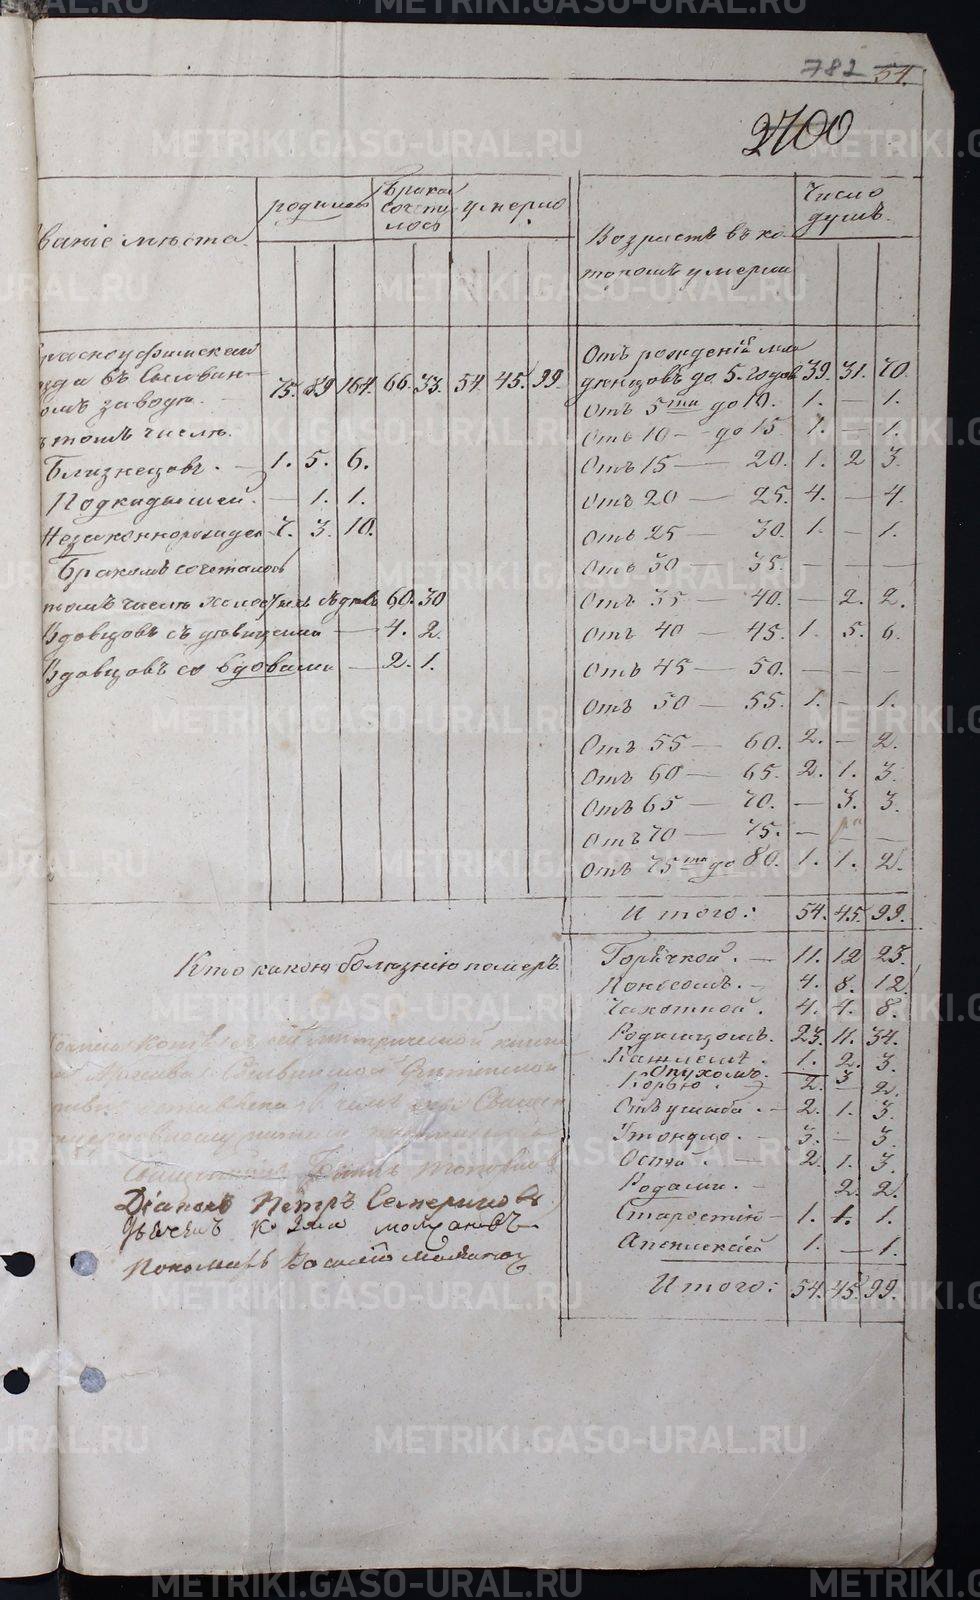 782 54.
2700
вание мѣста.
родилось
Брако
сочета
лось
умерло
Возрастъ въ ко
торомъ умерли
Число
душъ.
Красноуфимскаго
уѣзда въ Сылвин
скомъ заводѣ. 75. 89 164. 66. 33. 54. 45. 99.
въ томъ числѣ.
Близнецовъ. — 1. 5. 6.
Подкидышей. — 1. 1.
Незаконнорожден 7. 3. 10.
Бракомъ сочеталось
томъ числѣ холостыхъ съ дѣв 60. 30
Вдовцовъ съ дѣвицами — 4. 2.
Вдовцовъ со вдовами — 2. 1.
Отъ рожденiй мла
денцовъ до 5. годовъ 39. 31. 70.
Отъ 5ти до 10. 1. — 1.
Отъ 10 — до 15 1. — 1.
Отъ 15 — 20. 1. 2 3.
Отъ 20 — 25. 4. — 4.
Отъ 25 — 30. 1. — 1.
Отъ 30 — 35. — — —
Отъ 35 — 40. — 2. 2.
Отъ 40 — 45. 1. 5. 6.
Отъ 45 — 50. — — —
Отъ 50 — 55. 1. — 1.
Отъ 55 — 60. 2. — 2.
Отъ 60 — 65. 2. 1. 3.
Отъ 65 — 70. — 3. 3.
Отъ 70 — 75. — — —
Отъ 75ти до 80. 1. 1. 2.
Итого: 54. 45. 99.
Кто какою болѣзнiю померъ.
Горячкой. — 11. 12 23.
Поносомъ. — 4. 8. 12.
Чахоткой. 4. 4. 8.
Родимцомъ. 23. 11. 34.
Кашлемъ. 1. 2. 3.
Опухомъ. — 3
Корью. — 2. — 2.
Отъ ушиба. — 2. 1. 3.
Утонуло. — 3. — 3.
Оспой. — 2. 1. 3.
Родами. — 2. 2.
Старостiю — 1. 1. 1.
1. — 1.
Итого: 54. 45. 99.
Дiаконъ Петръ Семериковъ
Дьячекъ Козма Молчановъ
Пономарь Василiй
METRIKI.GASO-URAL.RU